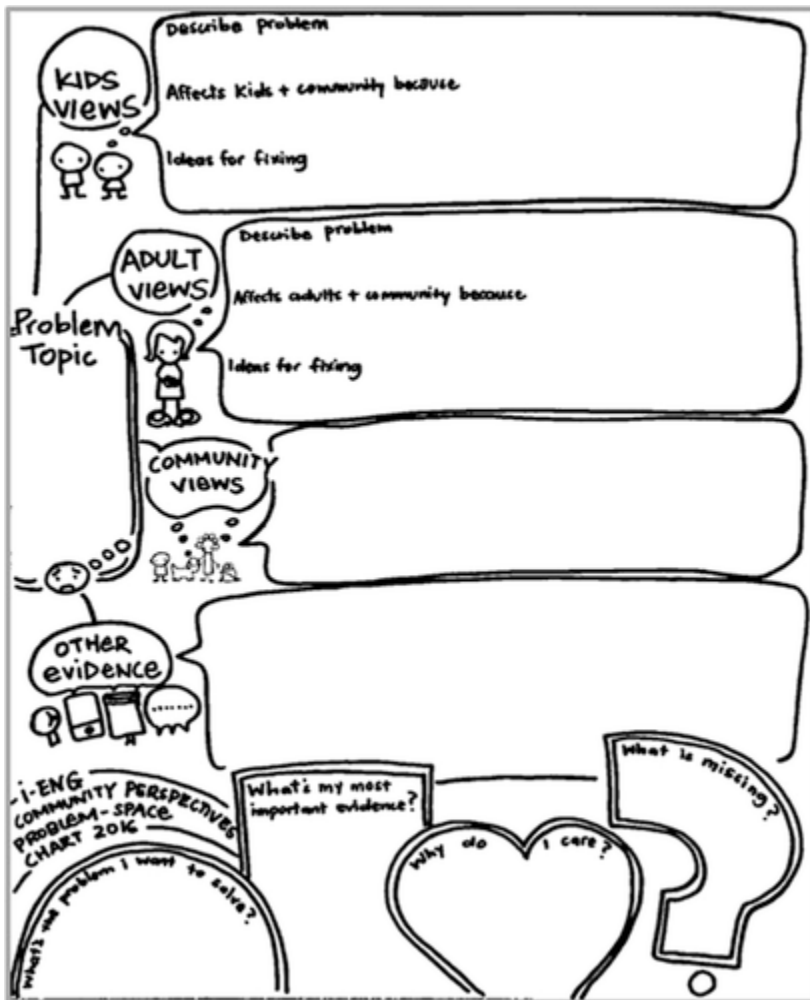 KIDS
VIEWS
Describe problem
Affects Kids + community because
Ideas for fixing
ADULT
VIEWS
Describe problem
Affects adults + community because
Ideas for fixing
Problem
Topic
COMMUNITY
VIEWS
OTHER
EVIDENCE
I-ENG
COMMUNITY PERSPECTIVES
PROBLEM-SPACE
CHART 2016
What's the problem I want to solve?
What's my most
important evidence?
Why do I care?
What is missing?